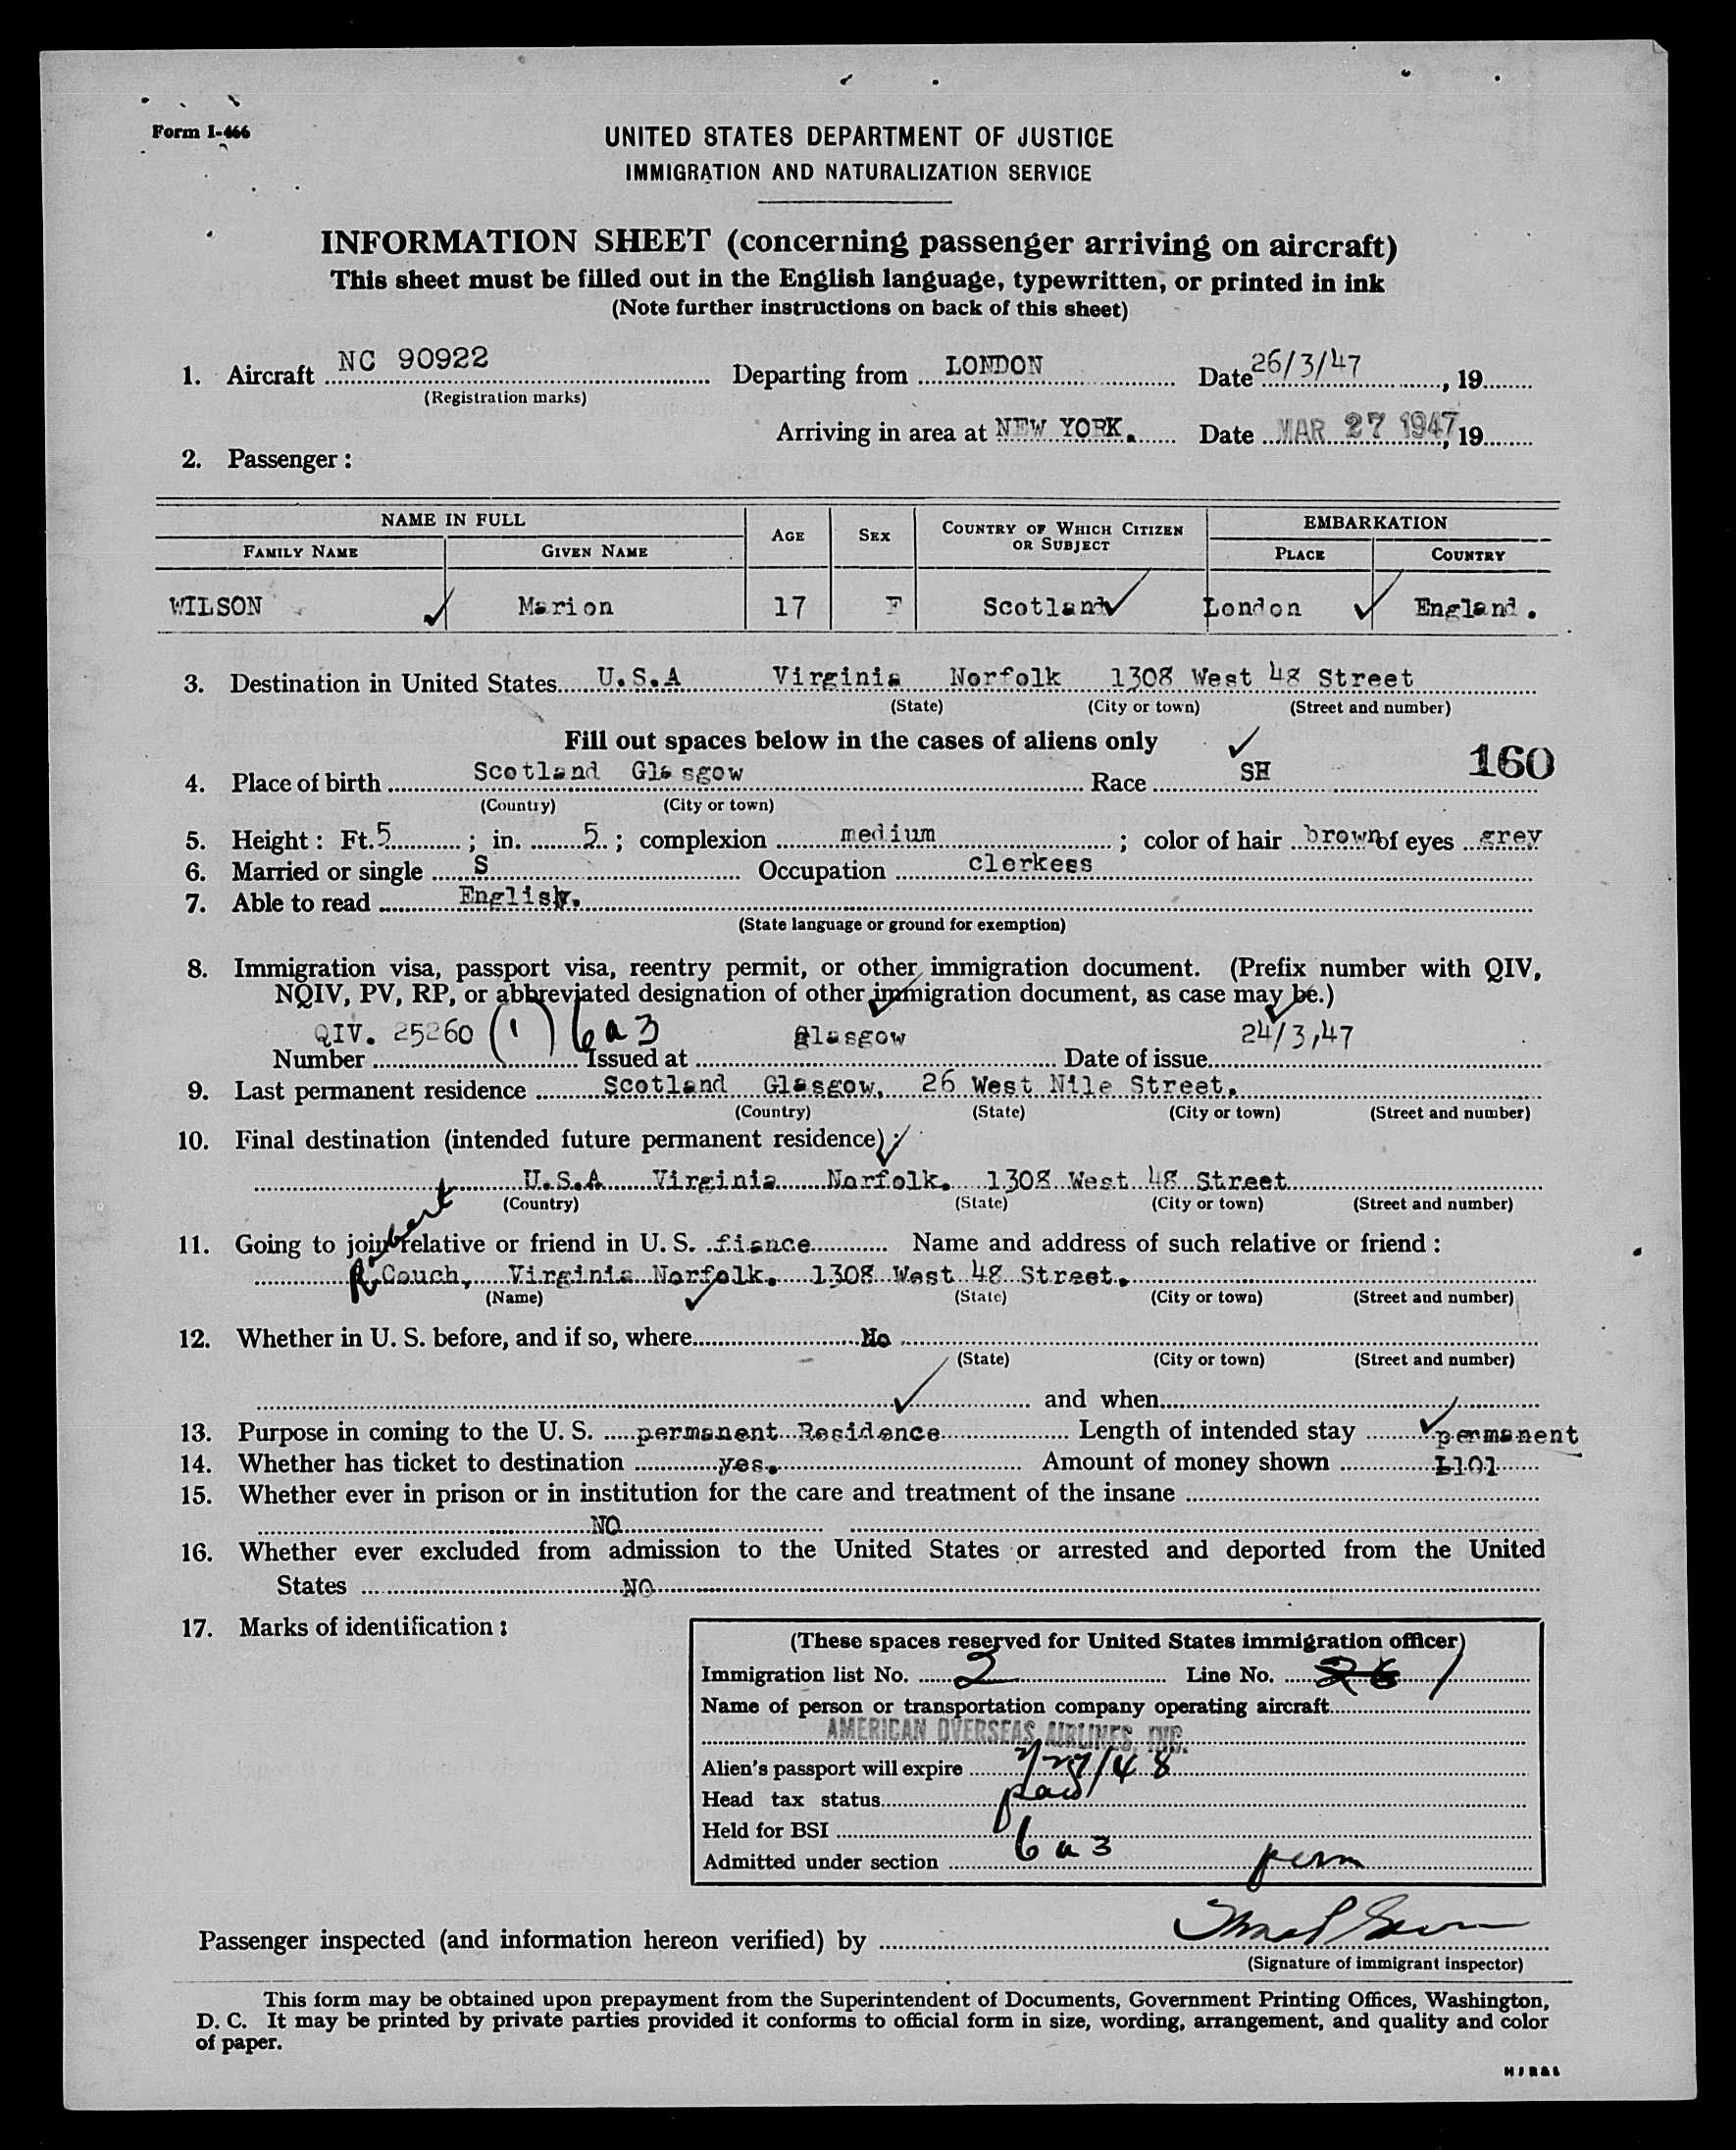 Form I-466
UNITED STATES DEPARTMENT OF JUSTICE
IMMIGRATION AND NATURALIZATION SERVICE
INFORMATION SHEET (concerning passenger arriving on aircraft)
This sheet must be filled out in the English language, typewritten, or printed in ink
(Note further instructions on back of this sheet)
1. Aircraft NC 90922 Departing from LONDON Date 26/3/47, 19
(Registration marks)
Arriving in area at NEW YORK. Date MAR 27 1947, 19
2. Passenger:
NAME IN FULL AGE SEX COUNTRY OF WHICH CITIZEN OR SUBJECT EMBARKATION
FAMILY NAME GIVEN NAME PLACE COUNTRY
WILSON Marion 17 F Scotland London England.
3. Destination in United States U.S.A Virginia Norfolk 1308 West 48 Street
(State) (City or town) (Street and number)
Fill out spaces below in the cases of aliens only
160
4. Place of birth Scotland Glasgow Race SH
(Country) (City or town)
5. Height: Ft. 5; in. 5.; complexion medium; color of hair brown of eyes grey
6. Married or single S Occupation clerkess
7. Able to read English.
(State language or ground for exemption)
8. Immigration visa, passport visa, reentry permit, or other immigration document. (Prefix number with QIV,
NQIV, PV, RP, or abbreviated designation of other immigration document, as case may be.)
QIV. 25260 (1) 6 a 3 Glasgow 24/3,47
Number Issued at Date of issue
9. Last permanent residence Scotland Glasgow, 26 West Nile Street.
(Country) (State) (City or town) (Street and number)
10. Final destination (intended future permanent residence):
U.S.A Virginia Norfolk. 1308 West 48 Street
(Country) (State) (City or town) (Street and number)
11. Going to join relative or friend in U. S. fiance Name and address of such relative or friend:
Robert Couch, Virginia Norfolk. 1308 West 48 Street.
(Name) (State) (City or town) (Street and number)
12. Whether in U. S. before, and if so, where No
(State) (City or town) (Street and number)
and when
13. Purpose in coming to the U. S. permanent Residence Length of intended stay permanent
14. Whether has ticket to destination yes. Amount of money shown L101
15. Whether ever in prison or in institution for the care and treatment of the insane
NO
16. Whether ever excluded from admission to the United States or arrested and deported from the United
States NO
17. Marks of identification:
(These spaces reserved for United States immigration officer)
Immigration list No. 2 Line No. 26 1
Name of person or transportation company operating aircraft
AMERICAN OVERSEAS AIRLINES, INC.
Alien's passport will expire /48
Head tax status paid
Held for BSI
Admitted under section 6 a 3 perm
Passenger inspected (and information hereon verified) by
(Signature of immigrant inspector)
This form may be obtained upon prepayment from the Superintendent of Documents, Government Printing Offices, Washington,
D. C. It may be printed by private parties provided it conforms to official form in size, wording, arrangement, and quality and color
of paper.